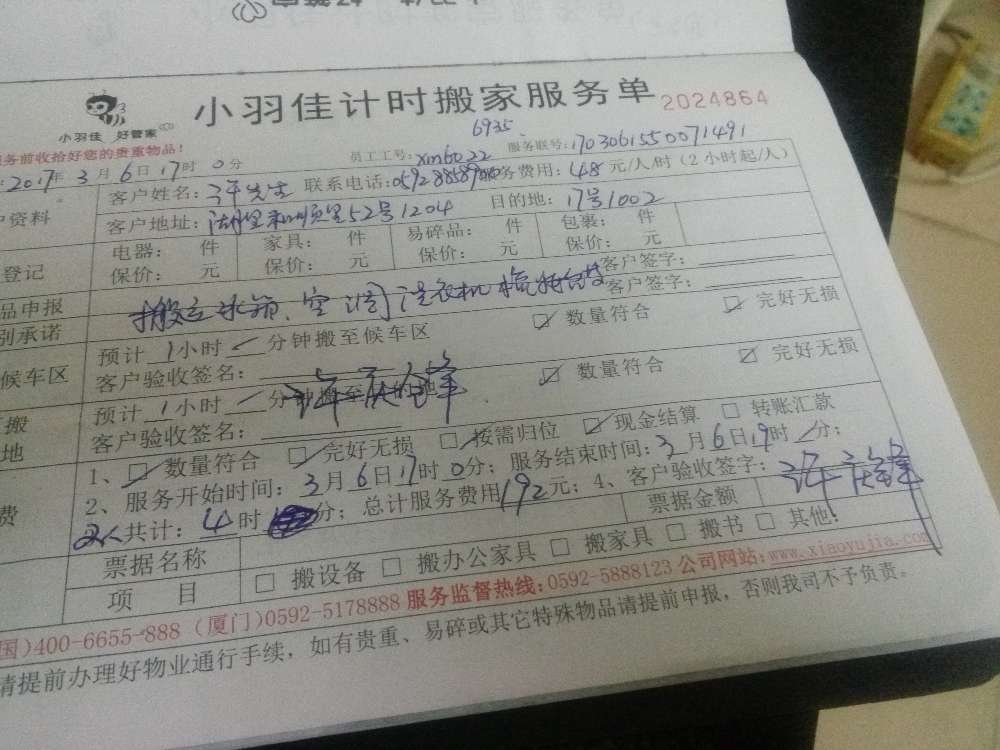 小羽佳计时搬家服务单 2024864
小羽佳 好管家
务前收拾好您的贵重物品!
6935
员工工号: xm6022 服务联号: 170306155 0071491
2017年 3月 6日 17时 0分
户资料 客户姓名: 先生 联系电话: 务费用: 48 元/人/时(2小时起/人)
客户地址: 52号1204 目的地: 17号1002
登记 电器: 件 家具: 件 易碎品: 件 包裹: 件
保价: 元 保价: 元 保价: 元 保价: 元
品申报 搬运冰箱、空调 洗衣机 客户签字:
别承诺 客户签字:
候车区 预计 1小时 分钟搬至候车区 数量符合 完好无损
客户验收签名:
搬 预计 1小时 分钟搬至 数量符合 完好无损
地 客户验收签名:
1、 数量符合 完好无损 按需归位 现金结算 转账汇款
2、服务开始时间: 3月 6日 17时 0分; 服务结束时间: 3月 6日 19时 分;
费 2人共计: 4时 分; 总计服务费用 192元; 4、客户验收签字:
票据名称 票据金额
项 目 搬设备 搬办公家具 搬家具 搬书 其他:
国)400-6655-888 (厦门)0592-5178888 服务监督热线:0592-5888123 公司网站:www.xiaoyujia.com
请提前办理好物业通行手续，如有贵重、易碎或其它特殊物品请提前申报，否则我司不予负责。